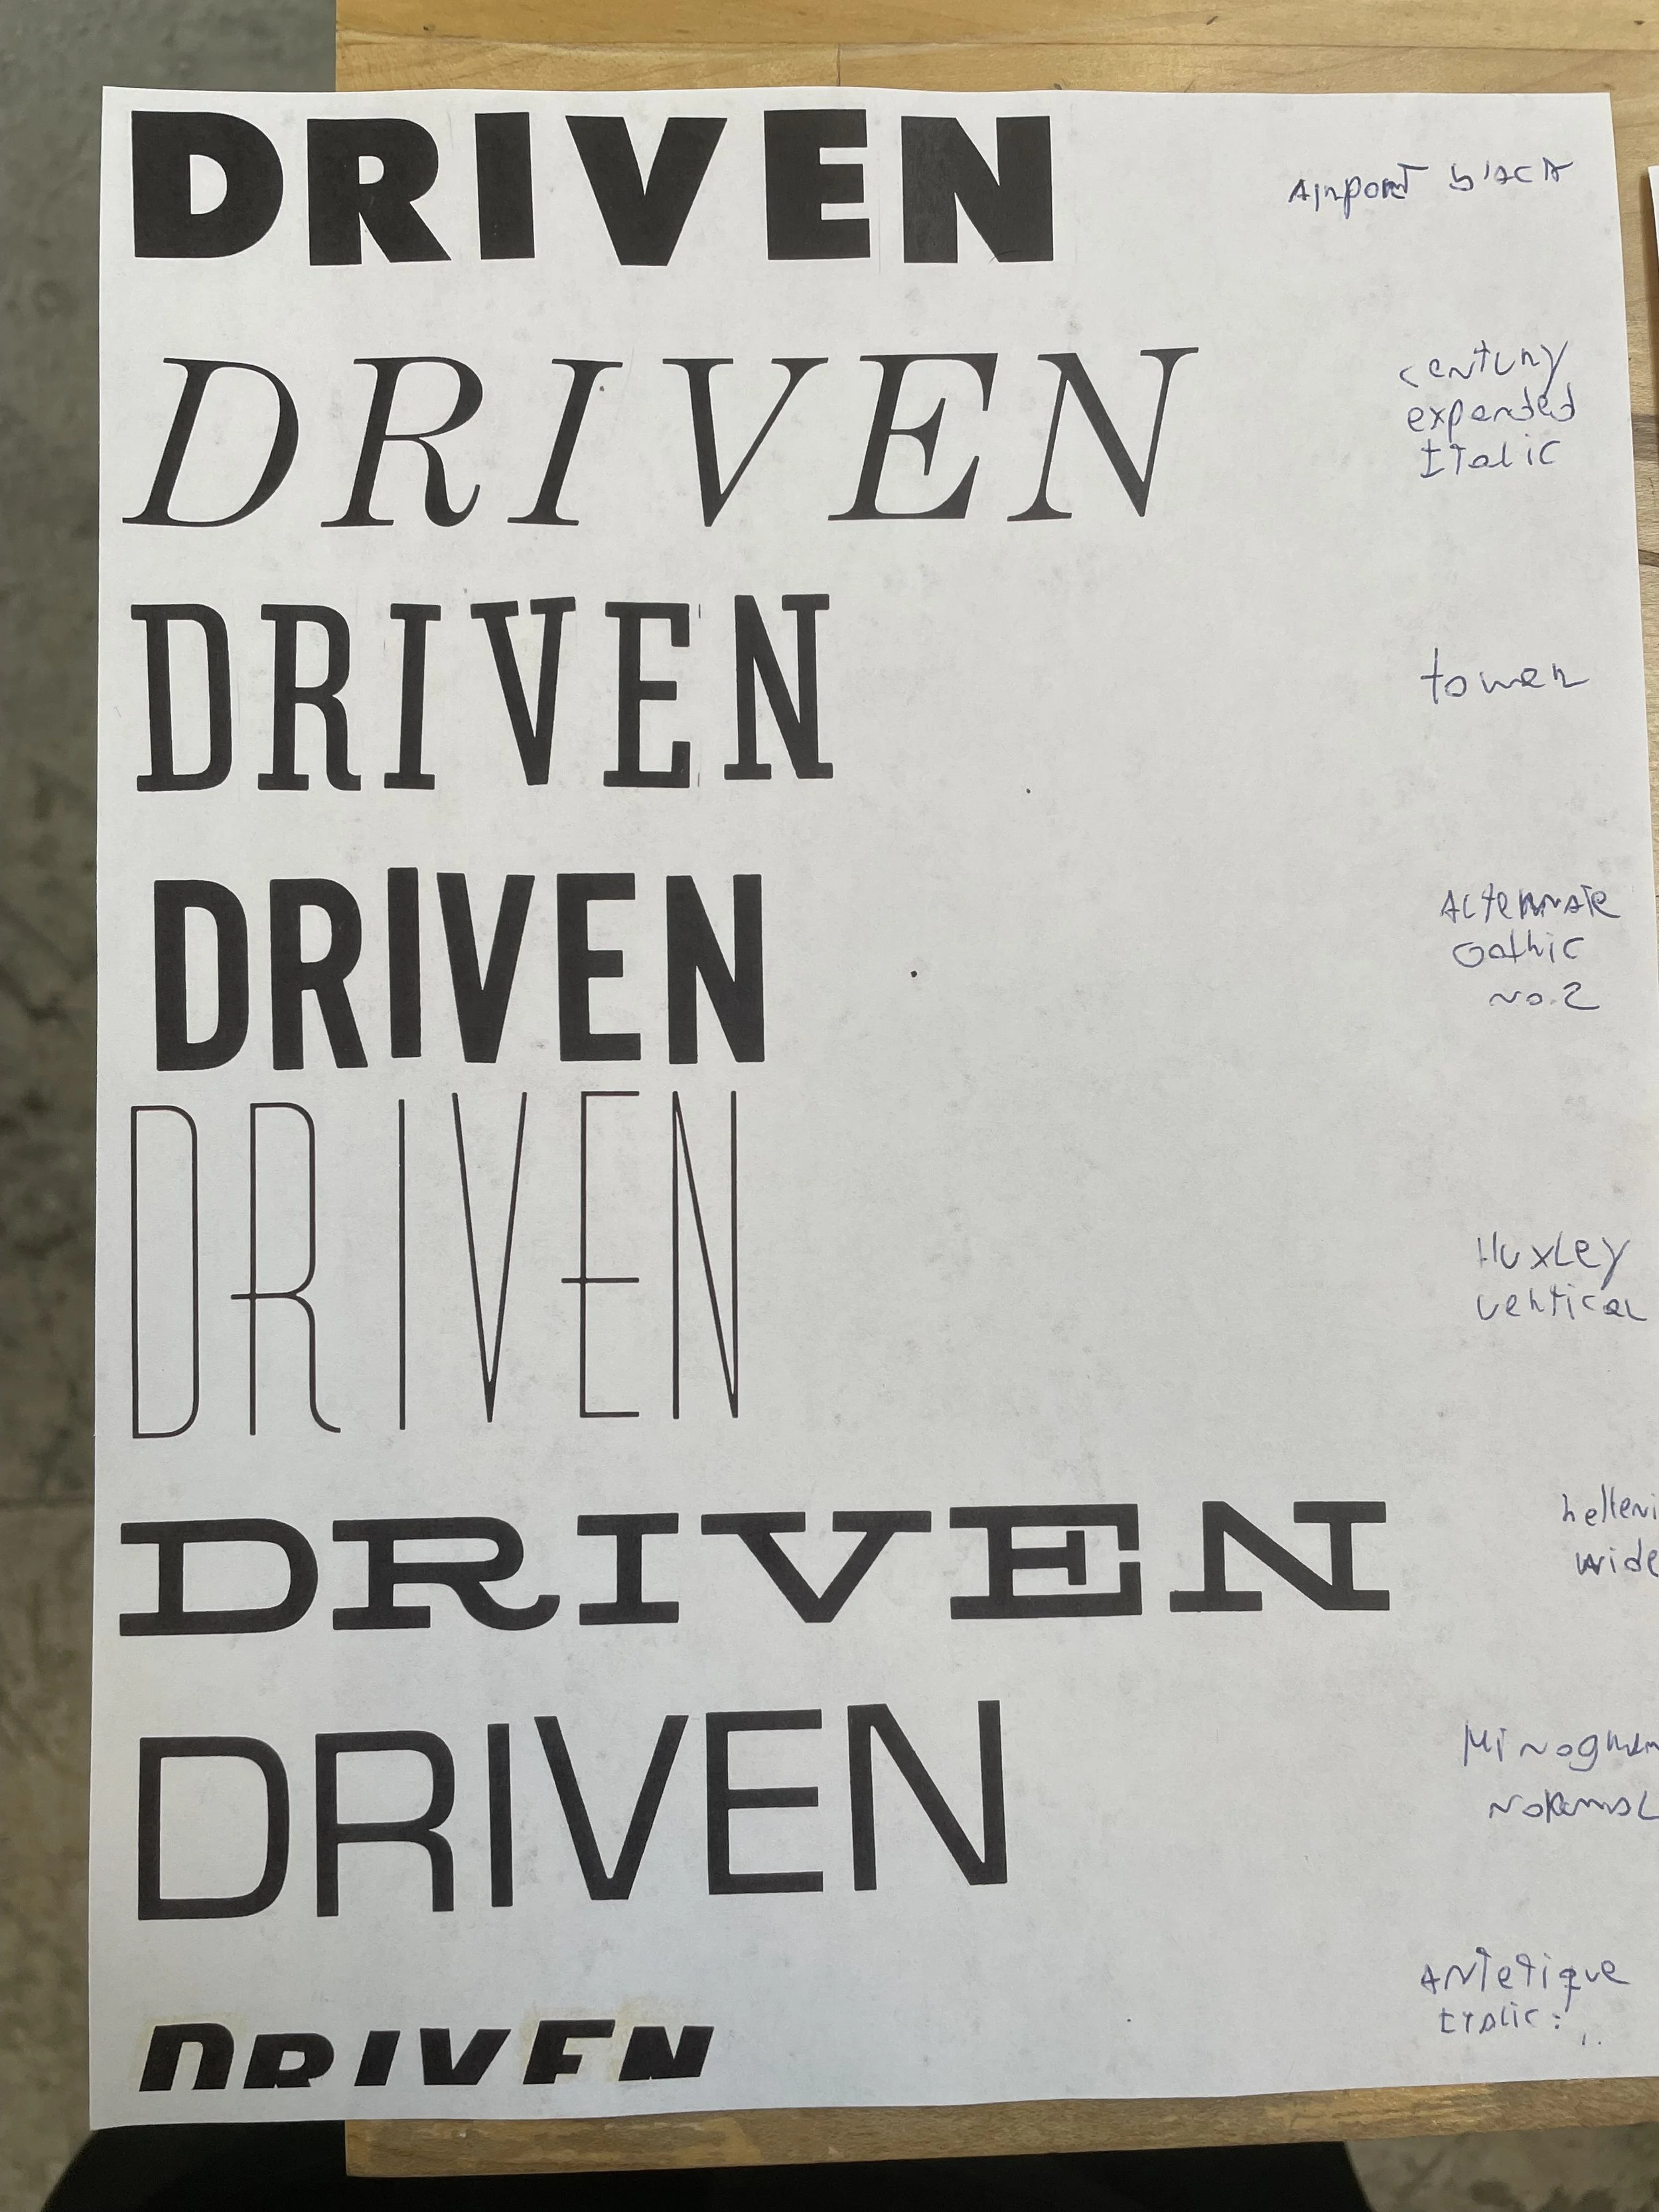 DRIVEN
Airport black
DRIVEN
century
expanded
Italic
DRIVEN
tower
DRIVEN
Alternate
Gothic
no.2
DRIVEN
Huxley
vertical
DRIVEN
helleni
wide
DRIVEN
normal
ANTetique
ITalic
DRIVEN